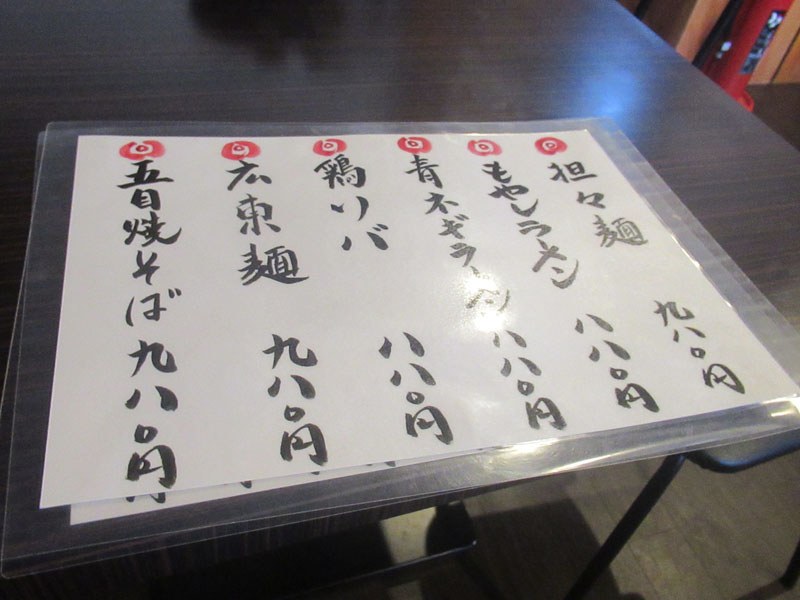 担々麺 九八〇円
もやしラーメン 八八〇円
青ネギラーメン 八八〇円
鶏ソバ 八八〇円
広東麺 九八〇円
五目焼そば 九八〇円